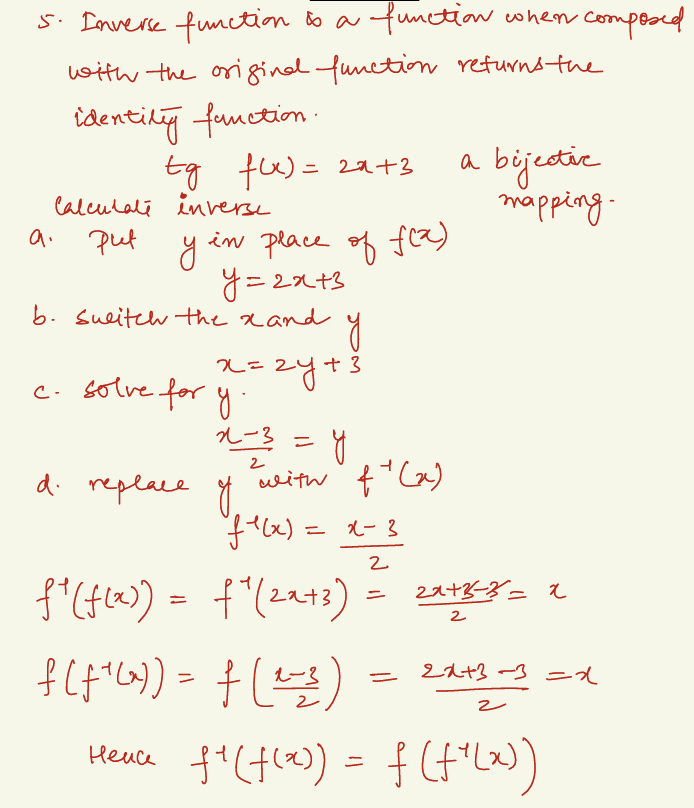 5. Inverse function is a function when composed
with the original function returns the
identity function.
Eg f(x) = 2x+3 a bijective
mapping.
Calculate inverse
a. Put y in place of f(x)
y = 2x+3
b. switch the x and y
x = 2y + 3
c. solve for y.
(x-3)/2 = y
d. replace y with f⁻¹(x)
f⁻¹(x) = (x-3)/2
f⁻¹(f(x)) = f⁻¹(2x+3) = (2x+3-3)/2 = x
f(f⁻¹(x)) = f((x-3)/2) = (2x+3-3)/2 = x
Hence f⁻¹(f(x)) = f(f⁻¹(x))